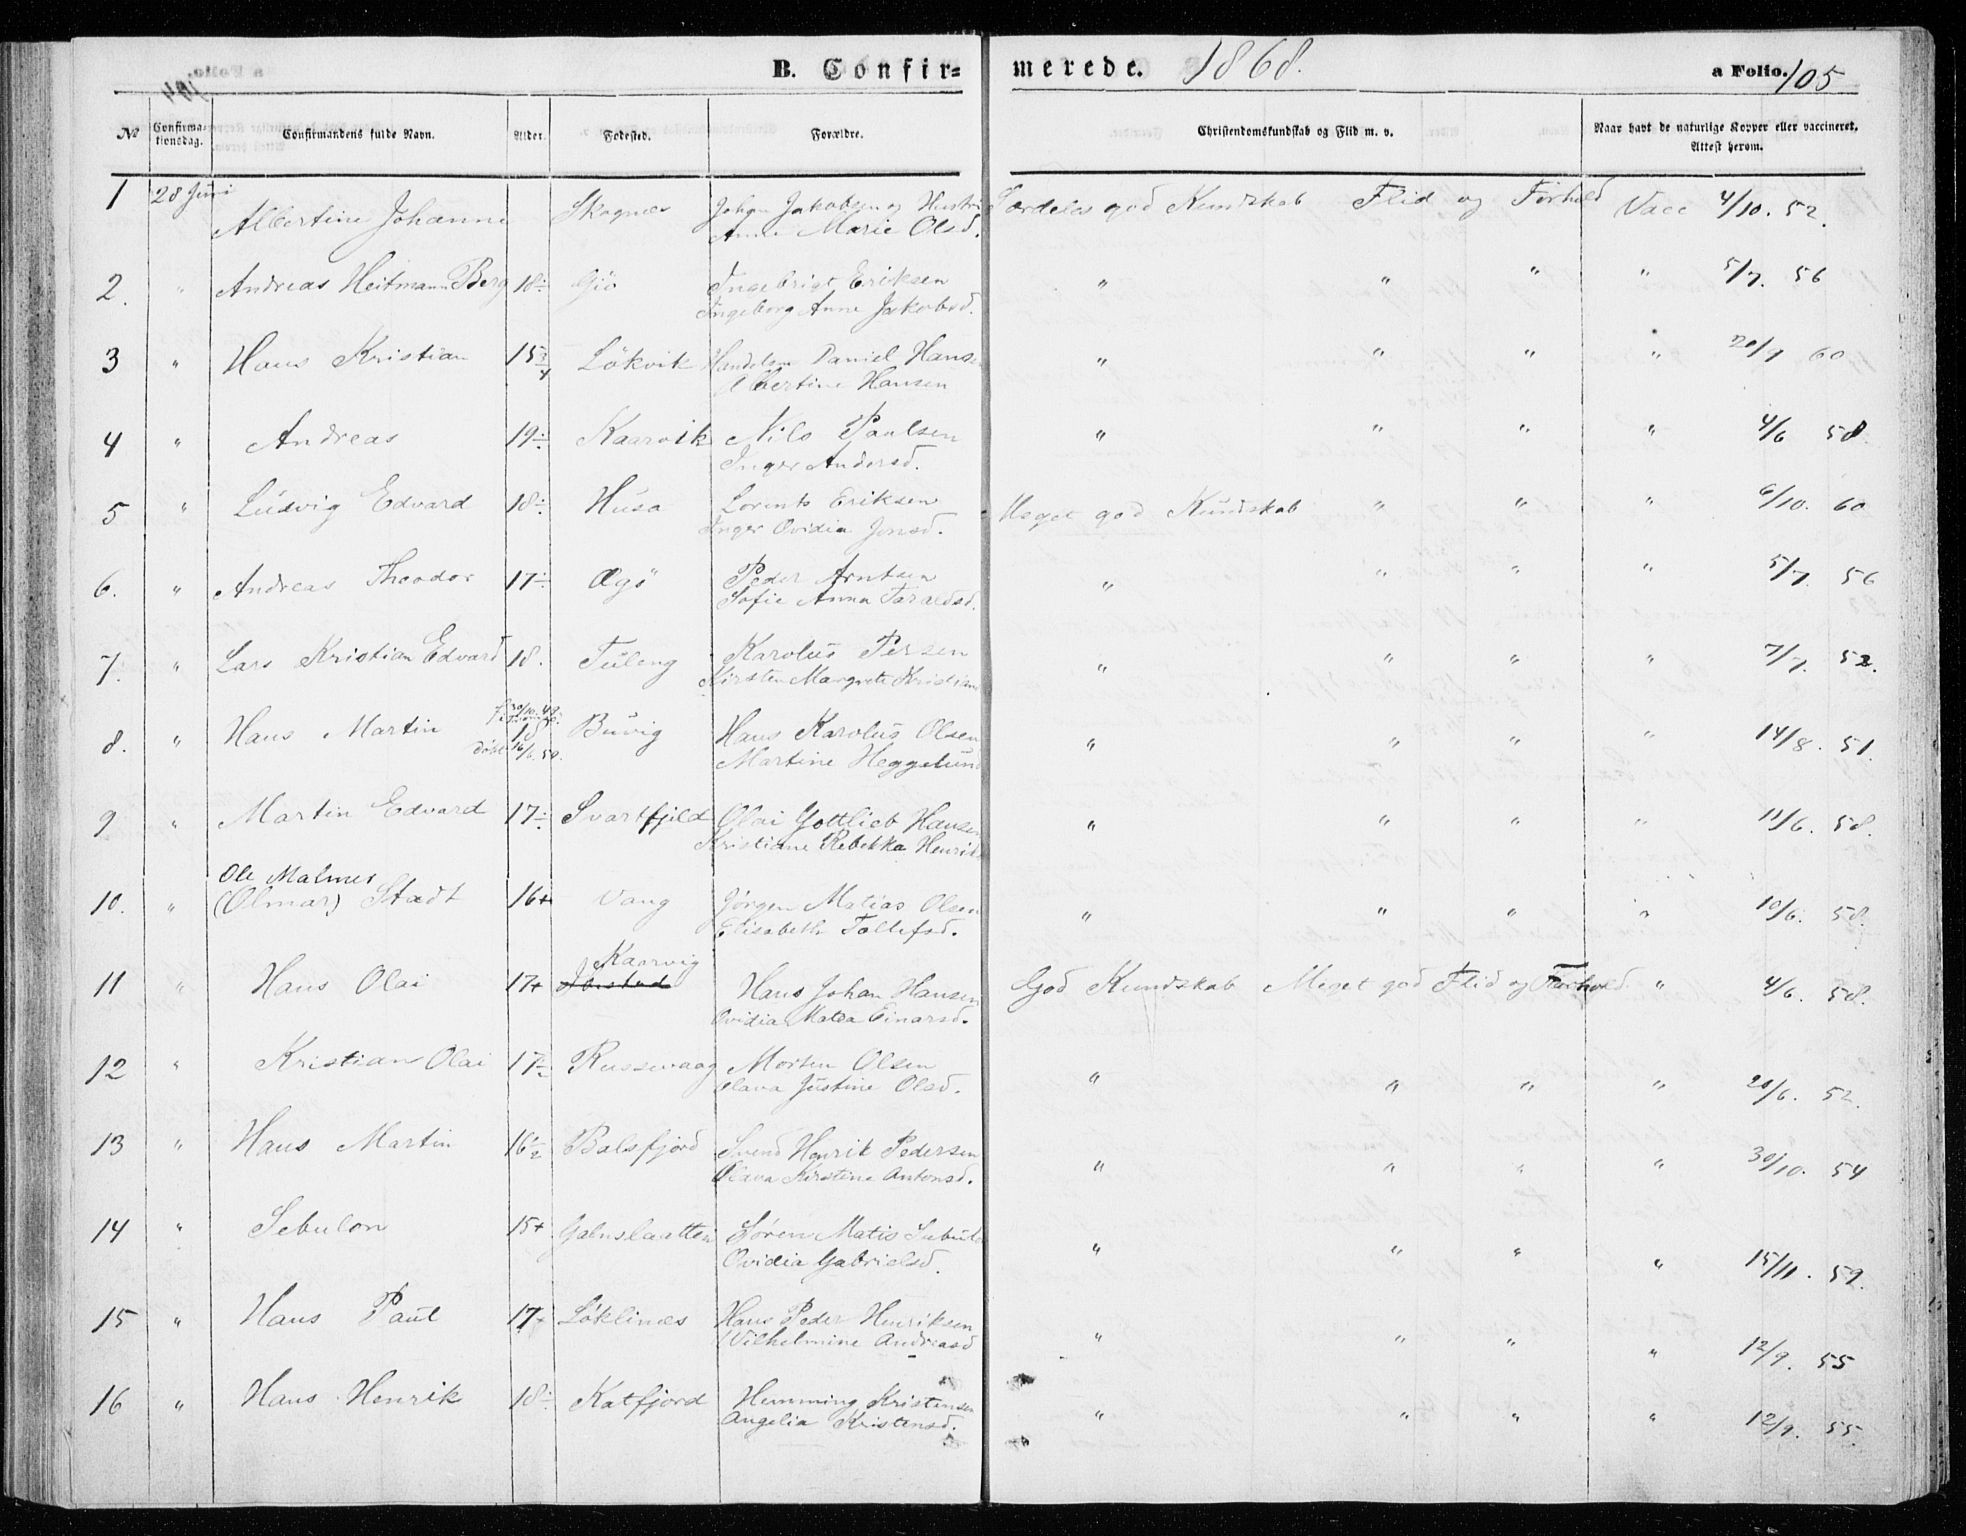 B. Confirmerede. 1868. a Folio. 105
No Confirmationsdag. Confirmandens fulde Navn. Alder. Fødested. Forældre. Christendomskundskab og Flid m. v. Naar havt de naturlige Kopper eller vaccineret, Attest herom.
1 28 Juni Albertine Johanne Skognes Johan Jakobsen og Hustru Særdeles god Kundskab Flid og Forhold Vacc 4/10. 52.
Anne Marie Olsd.
2. " Andreas Heitmann Berg 18 Giö Ingebrigt Eriksen " " " " 5/7. 56
Ingeborg Anne Jakobsd.
3 " Hans Kristian 15 3/4 Lökvik Handelsm Daniel Hansen " " " " 20/9 60
Albertine Hansen
4 " Andreas 19 Kaarvik Nils Paulsen " " " " 4/6 58.
Inger Andersd.
5 " Ludvig Edvard 18 Husa Lorents Eriksen Meget god Kundskab " " " 6/10. 60
Inger Ovidia Jensd.
6. " Andreas Theodor 17 Ægö Peder Arntsen " " " " 5/7. 56
Sofie Anna Taraldsd.
7. " Lars Kristian Edvard 18. Tuleng Karolus Persen " " " " 7/7. 52.
Kirsten Margrete Kristians
f. 30/10. 49.
8. " Hans Martin 18 Buvig Hans Karolus Olsen " " " " 14/8. 51.
døbt 16/6. 50. Martine Heggelund
9 " Martin Edvard 17 Svartfjeld Olai Gottlieb Hansen " " " " 11/6. 58.
Kristiane Rebekka Henriks
Ole Malmer
10. " (Olmar) Stadt 16+ Vang Jørgen Matias Olsen " " " " 10/6. 58.
Elisabeth Tollefsd.
Kaarvig
11 " Hans Olai 17+ Hans Johan Hansen God Kundskab Meget god Flid og Forhold " 4/6. 58.
Ovidia Matea Einarsd.
12 " Kristian Olai 17 1/2 Russevaag Morten Olsen " " " " 20/6. 52.
Olava Justine Olsd.
13 " Hans Martin 16 1/2 Balsfjord Svend Henrik Pedersen " " " " 30/10. 54
Olava Kirstine Antonsd.
14 " Sebulon 15+ Galnslaatten Søren Matis Sebulo " " " " 15/11. 59.
Ovidia Gabrielsd.
15 " Hans Paul 17+ Løklines Hans Peder Henriksen " " " " 12/9. 55
Wilhelmine Andreasd
16 " Hans Henrik 18 Katfjord Hemming Kristensen " " " " 12/9. 55.
Angelia Kristensd.